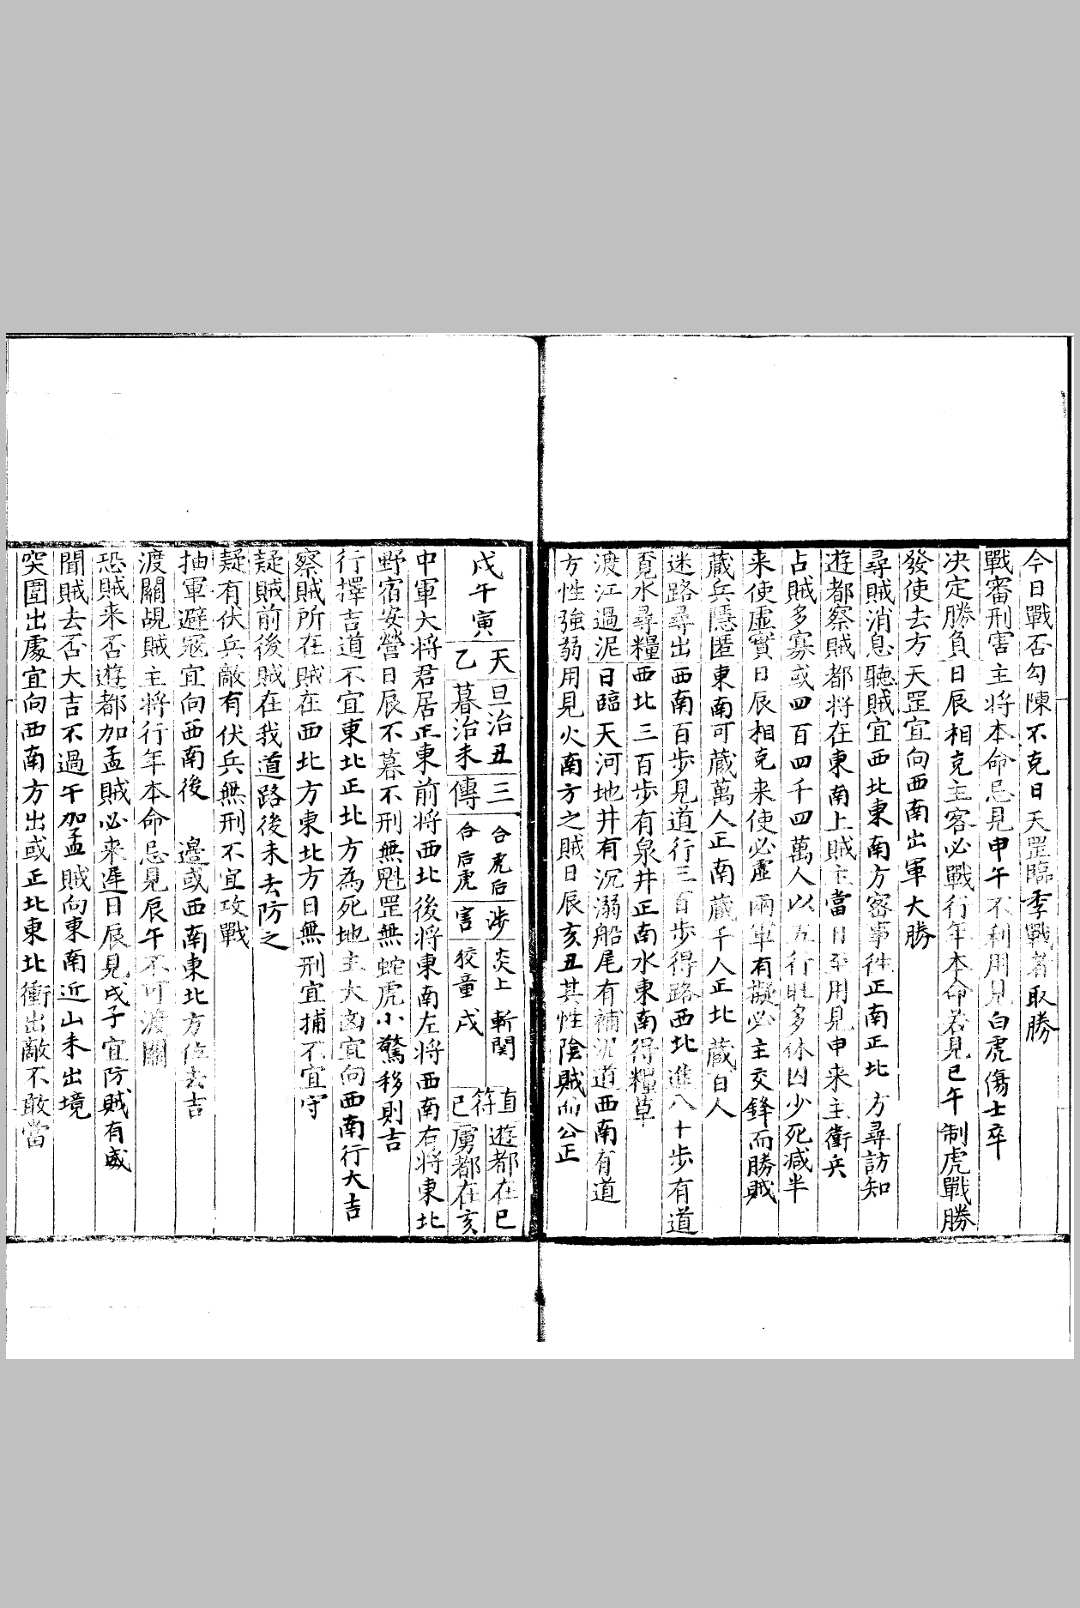 今日戰否勾陳不克日天罡臨季戰者取勝
戰審刑害主將本命忌見申午不利用見白虎傷士卒
决定勝負日辰相克主客必戰行年本命若見巳午制虎戰勝
發使去方天罡宜向西南出軍大勝
尋賊消息聽賊宜西北東南方審事往正南正北方尋訪知
遊都察賊都將在東南上賊主當日至用見申来主衛兵
占賊多寡或四百四千四萬人以五行旺多休囚少死减半
来使虛實日辰相克来使必虛兩軍有礙必主交鋒而勝賊
蔵兵隱匿東南可蔵萬人正南蔵千人正北蔵百人
迷路尋出西南百步見道行三百步得路西北進八十步有道
覓水尋糧西北三百步有泉井正南水東南得糧草
渡江過泥日臨天河地井有沉溺船尾有補沉道西南有道
方性強弱用見火南方之賊日辰亥丑其性陰賊向公正
戊午寅
天旦治丑三合虎后涉炎上斬関直遊都在巳
乙暮治未傳合后虎害狡童戌符巳虜都在亥
中軍大將君居正東前將西北後將東南左將西南右將東北
野宿安營日辰不墓不刑無魁罡無蛇虎小驚移則吉
行擇吉道不宜東北正北方為死地主大凶宜向西南行大吉
察賊所在賊在西北方東北方日無刑宜捕不宜守
疑賊前後賊在我道路後未去防之
疑有伏兵敵有伏兵無刑不宜攻戰
抽軍避寇宜向西南後 邉或西南東北方位去吉
渡關覘賊主將行年本命忌見辰午不可渡關
恐賊来否遊都加孟賊必来遲日辰見戌子宜防賊有威
聞賊去否大吉不過午加孟賊向東南近山未出境
突圍出處宜向西南方出或正北東北衝出敵不敢當